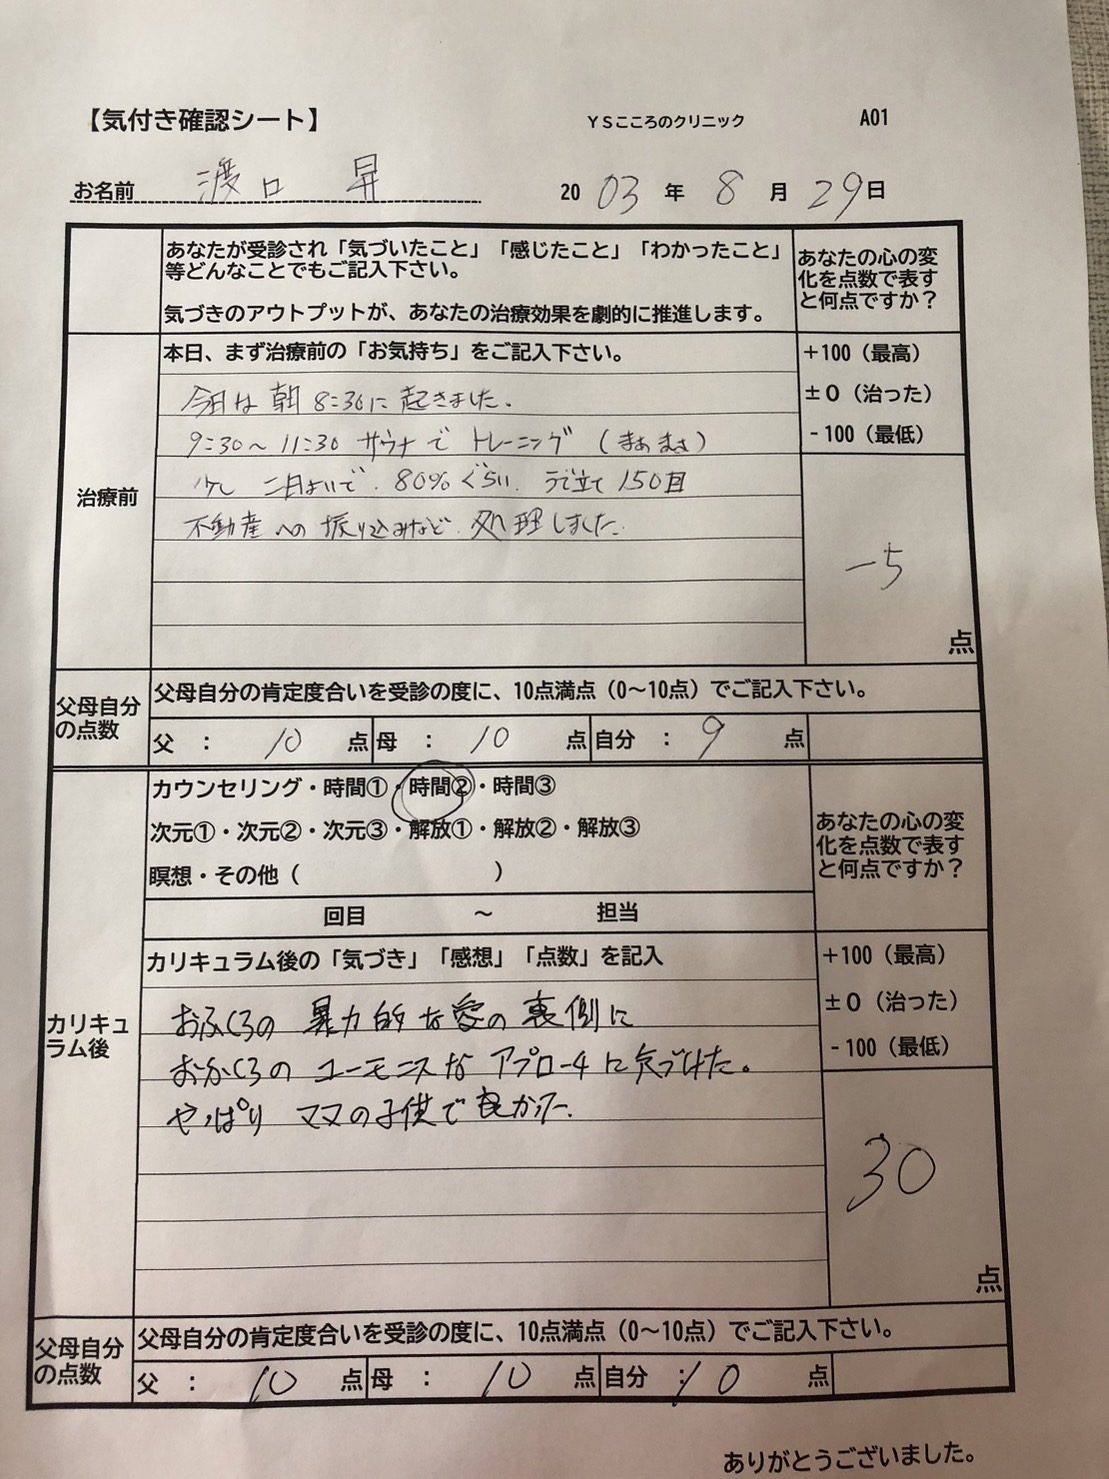 【気付き確認シート】 YSこころのクリニック A01
お名前 渡口 昇 2003年8月29日
あなたが受診され「気づいたこと」「感じたこと」「わかったこと」
等どんなことでもご記入下さい。
気づきのアウトプットが、あなたの治療効果を劇的に推進します。
あなたの心の変
化を点数で表す
と何点ですか？
治療前
本日、まず治療前の「お気持ち」をご記入下さい。
今日は朝8:30に起きました。
9:30〜11:30 サウナでトレーニング（まぁまぁ）
少し二日よいで、80％ぐらい、うで立て150回
不動産への振り込みなど、処理しました。
+100（最高）
±0（治った）
-100（最低）
-5
点
父母自分
の点数
父母自分の肯定度合いを受診の度に、10点満点（0〜10点）でご記入下さい。
父 ： 10 点 母 ： 10 点 自分 ： 9 点
カリキュ
ラム後
カウンセリング・時間①・時間②・時間③
次元①・次元②・次元③・解放①・解放②・解放③
瞑想・その他（ ）
回目 〜 担当
あなたの心の変
化を点数で表す
と何点ですか？
カリキュラム後の「気づき」「感想」「点数」を記入
おふくろの 暴力的な愛の裏側に
おふくろの ユーモニスなアプローチに気づけた。
やっぱり ママの子供で良かった。
+100（最高）
±0（治った）
-100（最低）
30
点
父母自分
の点数
父母自分の肯定度合いを受診の度に、10点満点（0〜10点）でご記入下さい。
父 ： 10 点 母 ： 10 点 自分 ： 10 点
ありがとうございました。